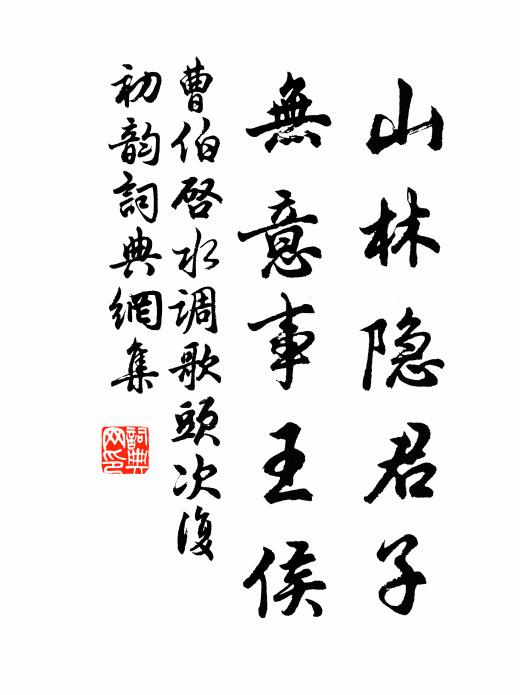 山林隐君子
無意事王侯
曹伯啓水调歌頭次復
初韵詞典網集
詞典
网印